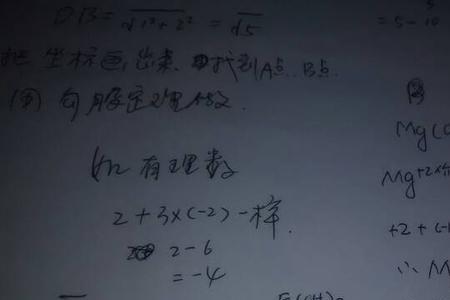 OB = √1²+2² = √5
把坐标画出来 找到A点、B点.
用勾股定理
如有理数
2+3×(-2)一样.
2-6
=-4
= 5 -
Mg(
Mg+2×
+2+(-
∴ M